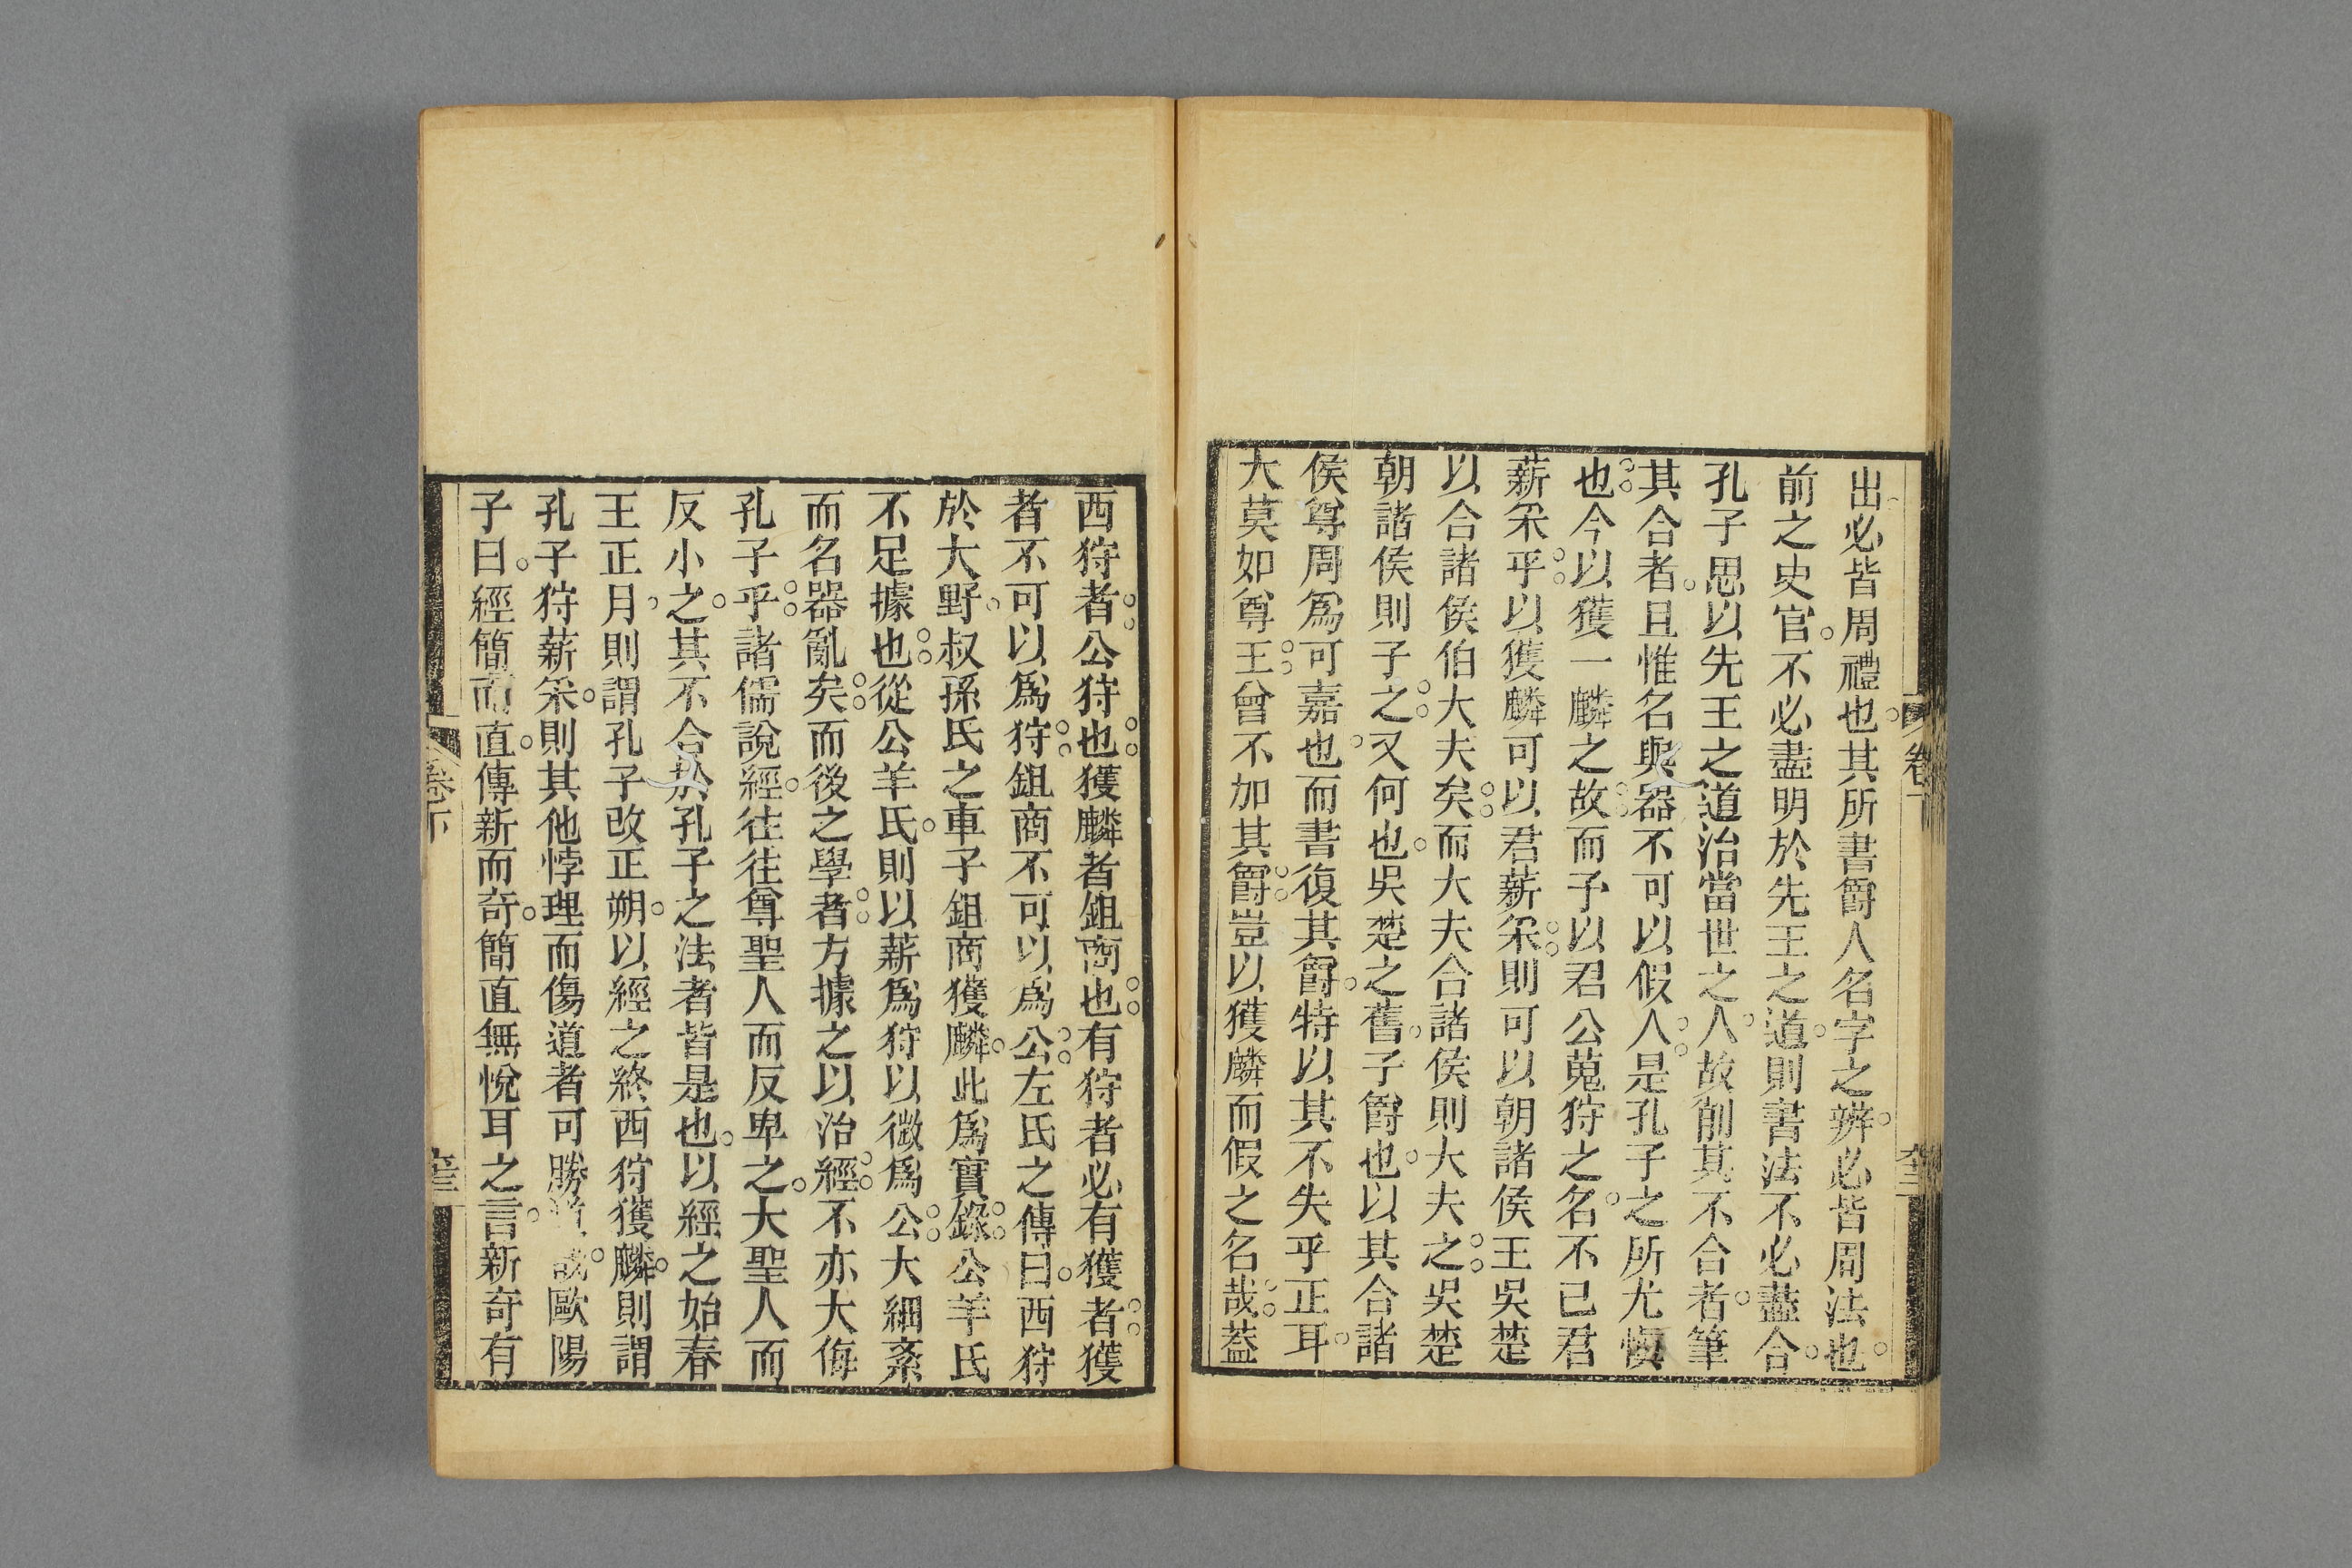 出必皆周禮也其所書爵人名字之辨必皆周法也
前之史官不必盡明於先王之道則書法不必盡合
孔子思以先王之道治當世之人故削其不合者筆
其合者且惟名與器不可以假人是孔子之所尤慎
也今以獲一麟之故而予以君公蒐狩之名不已君
薪采乎以獲麟可以君薪采則可以朝諸侯王吳楚
以合諸侯伯大夫矣而大夫合諸侯則大夫之吳楚
朝諸侯則子之又何也吳楚之舊子爵也以其合諸
侯尊周爲可嘉也而書復其爵特以其不失乎正耳
大莫如尊王曾不加其爵豈以獲麟而假之名哉蓋
卷下
西狩者公狩也獲麟者鉏商也有狩者必有獲者獲
者不可以爲狩鉏商不可以爲公左氏之傳曰西狩
於大野叔孫氏之車子鉏商獲麟此爲實錄公羊氏
不足據也從公羊氏則以薪爲狩以微爲公大細紊
而名器亂矣而後之學者方據之以治經不亦大侮
孔子乎諸儒說經往往尊聖人而反卑之大聖人而
反小之其不合於孔子之法者皆是也以經之始春
王正月則謂孔子改正朔以經之終西狩獲麟則謂
孔子狩薪采則其他悖理而傷道者可勝道哉歐陽
子曰經簡而直傳新而奇簡直無悅耳之言新奇有
卷下